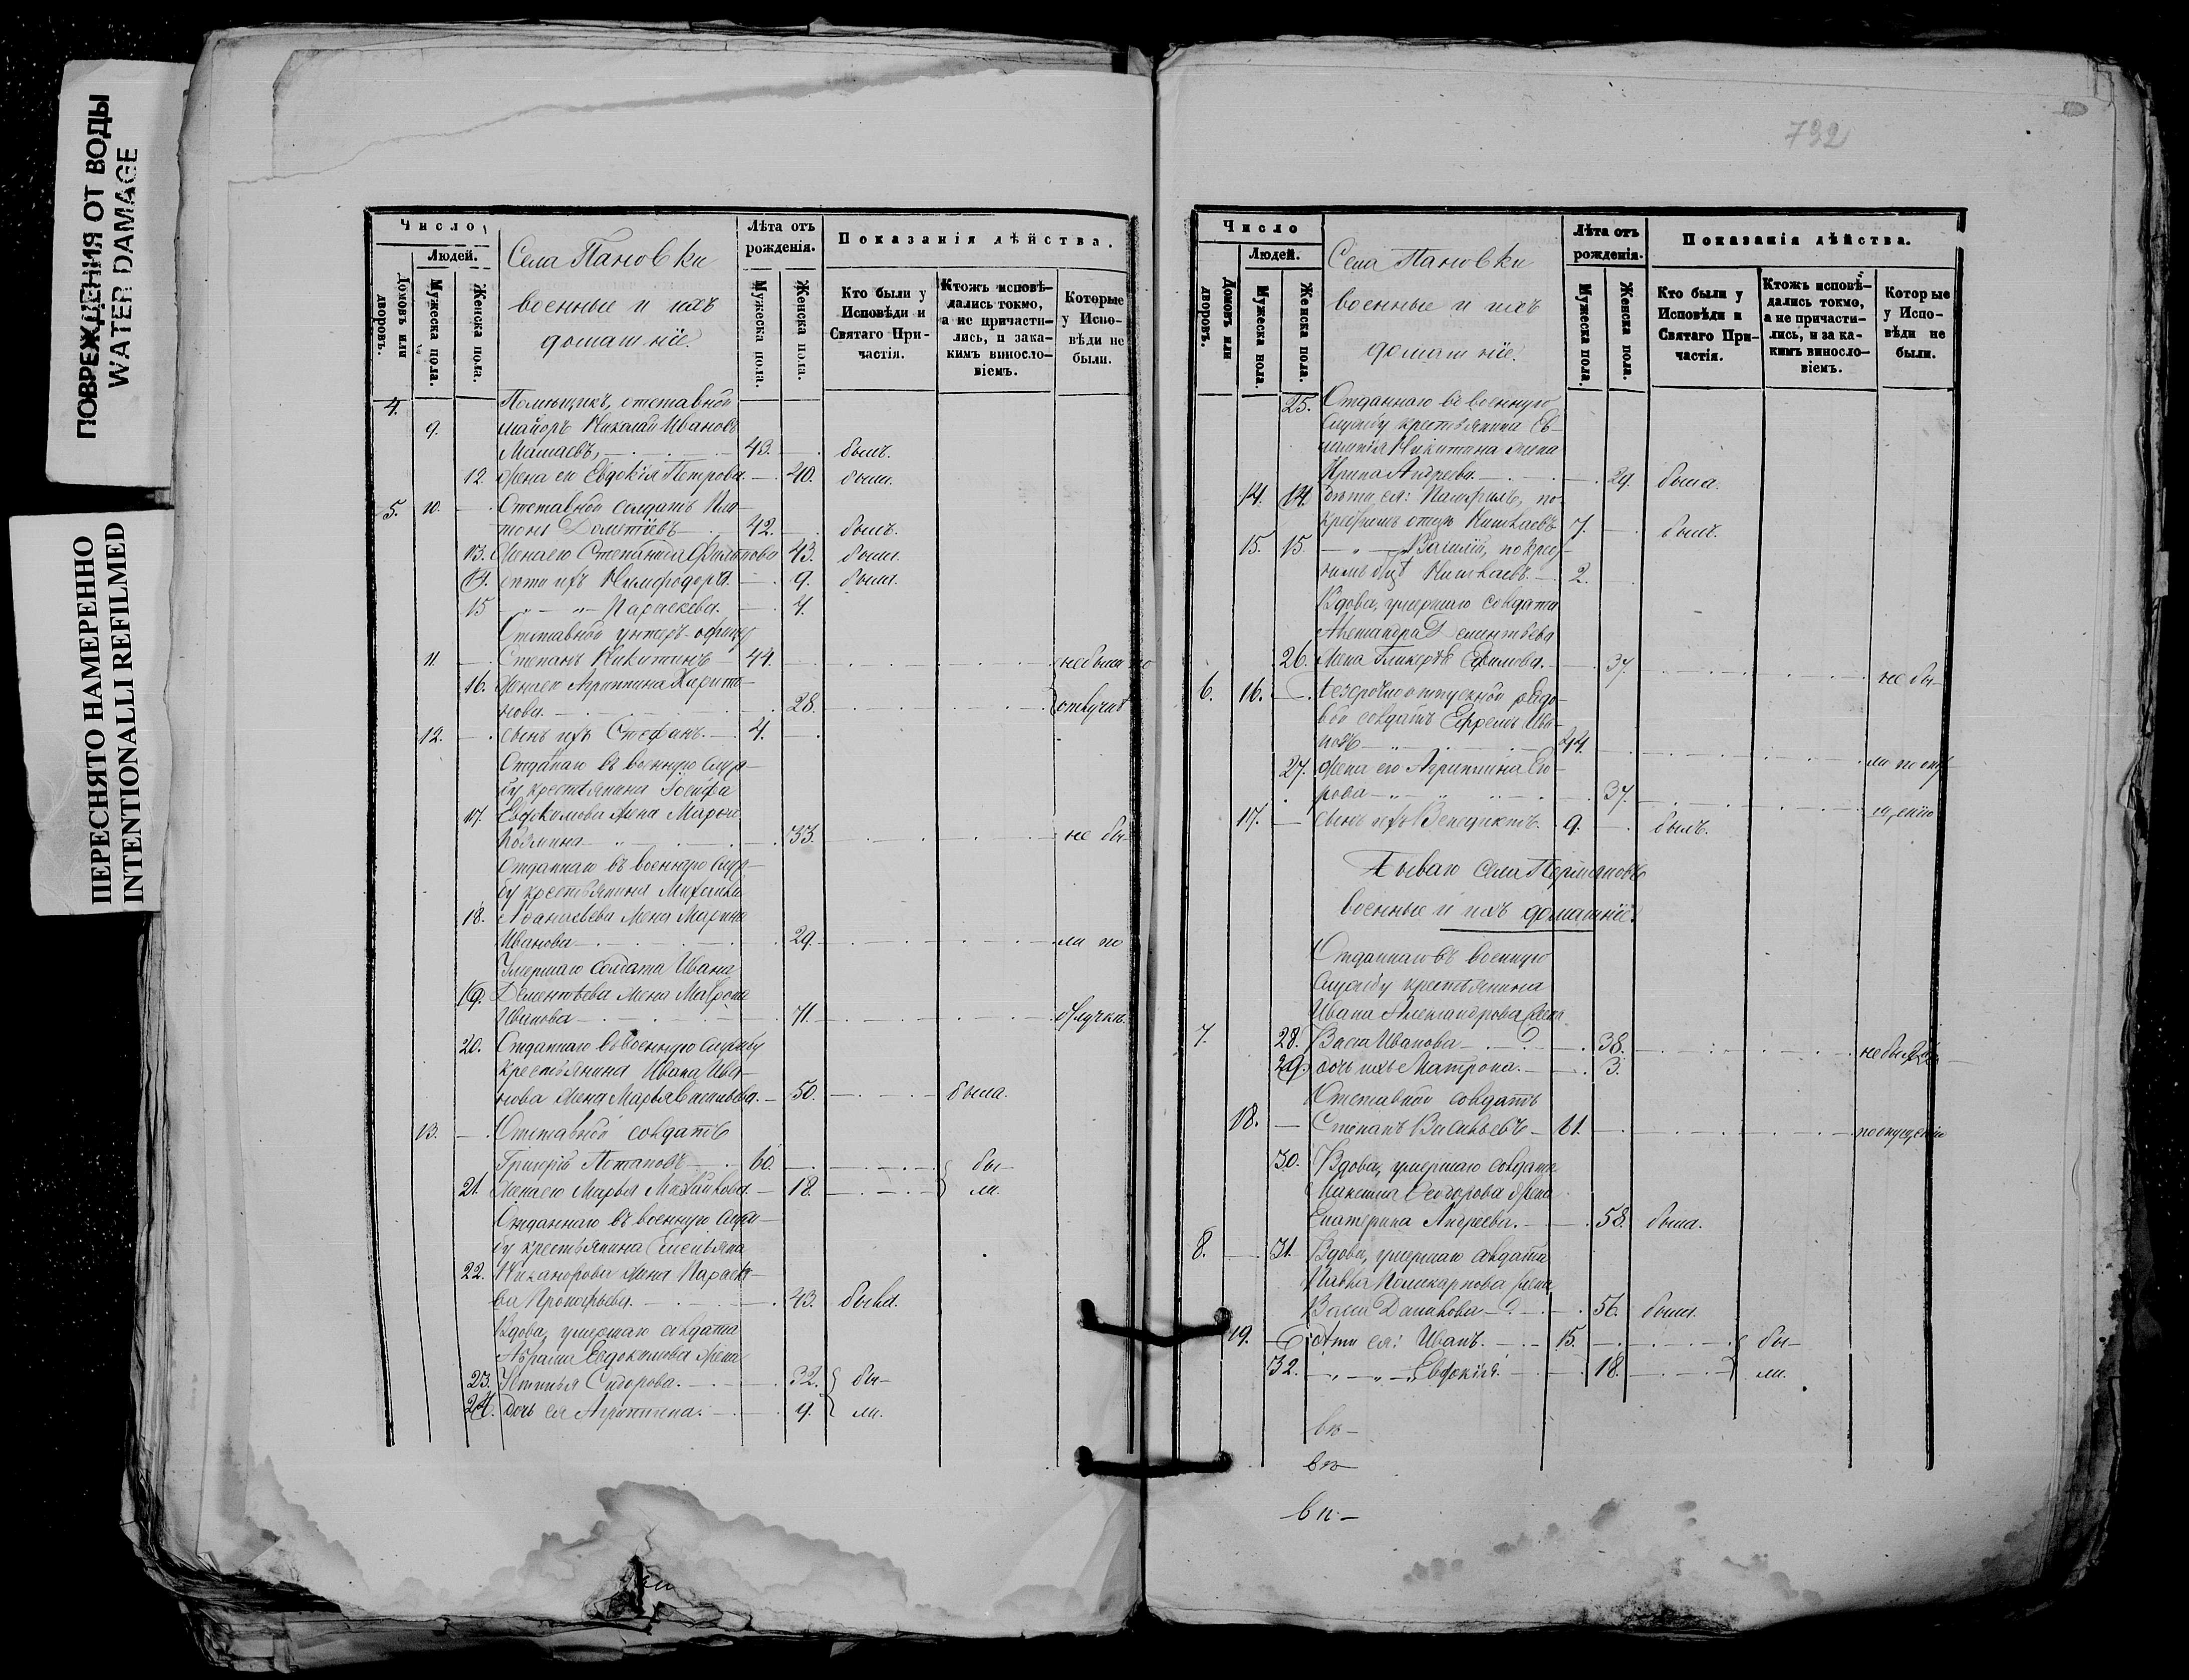 ПОВРЕЖДЕНИЯ ОТ ВОДЫ
WATER DAMAGE
ПЕРЕСНЯТО НАМЕРЕННО
INTENTIONALLI REFILMED
Число
Людей.
Домовъ или дворовъ.
Мужеска пола.
Женска пола.
Села Пановки
военные и ихъ
домашніе
Лѣта отъ рожденія.
Мужеска пола.
Женска пола.
Показанія дѣйства.
Кто были у Исповѣди и Святаго Причастія.
Ктожъ исповѣдались токмо, а не причастились, и за какимъ винословіемъ.
Которые у Исповѣди не были.
4. Помѣщикъ, отставной
9. маіоръ Николай Ивановъ
43. былъ.
12. Жена его Евдокія Петрова. 40. была.
5. 10. Отставной солдатъ Пла-
тонъ 42. былъ.
13. Жена его Степанида 43. была.
14. дѣти ихъ 9. была.
15 Параскева. 4.
Отставной унтеръ-офицер
11. Степанъ Никитинъ 44. не были по
16. Жена его Агриппина Харито-
нова. 28. отлучкѣ
12. сынъ ихъ Стефанъ. 4.
Отданнаго въ военную служ-
бу крестьянина Іосифа
17. Евдокимова жена Марья
33. не бы-
Отданнаго въ военную служ-
бу крестьянина Михаила
18. Афанасьева жена Марина
Иванова 29. ли по
Умершаго солдата Ивана
19. Дементьева жена
Иванова 71. отлучкѣ.
20. Отданнаго въ военную службу
крестьянина Ивана Ива-
нова жена Марья Васильева. 50. была.
13. Отставной солдатъ
Григорій Потаповъ 60. бы-
21. Жена его Марья Михайлова. 18. ли.
Отданнаго въ военную служ-
бу крестьянина Емельяна
22. Никанорова жена Параске-
ва Прокофьева. 43. была.
Вдова, умершаго солдата
Абрама Евдокимова жена
23. Устинья Сидорова. 32. бы-
24. дочь ея Агриппина. 9. ли.
792
Число
Людей.
Домовъ или дворовъ.
Мужеска пола.
Женска пола.
Села Пановки
военные и ихъ
домашніе.
Лѣта отъ рожденія.
Мужеска пола.
Женска пола.
Показанія дѣйства.
Кто были у Исповѣди и Святаго Причастія.
Ктожъ исповѣдались токмо, а не причастились, и за какимъ винословіемъ.
Которые у Исповѣди не были.
25. Отданнаго въ военную
службу крестьянина Ев-
Никитина жена
Ирина Андреева. 29. была.
14. дѣти ея: по
крестномъ отцѣ Николаевъ 7. былъ.
15. Василій, по крест-
номъ отцѣ Николаевъ. 2.
Вдова, умершаго солдата
Александра Дементьева
26. жена Гликерія Ефимова. 37. не бы-
6. 16. безсрочноотпускной рядо-
вой солдатъ Ефремъ Ива-
новъ 44.
27. Жена его Агриппина Его- ли по опу-
рова 37. щенію
17. сынъ ихъ Венедиктъ. 9. былъ.
Тогоже села
военные и ихъ домашніе.
Отданнаго въ военную
службу крестьянина
Ивана Александрова жена
7. 28. Васса Иванова 38. не были
29. дочь ихъ Матрона. 3.
Отставной солдатъ
18. Степанъ Васильевъ 61. по опущенію
30. Вдова, умершаго солдата
Максима Ѳеодорова жена
Екатерина Андреева. 58. была.
8. 31. Вдова, умершаго солдата
Павла Поликарпова жена
Васса Данилова 56. была.
19. дѣти ея: Иванъ. 15. бы-
32. Евдокія. 18. ли.